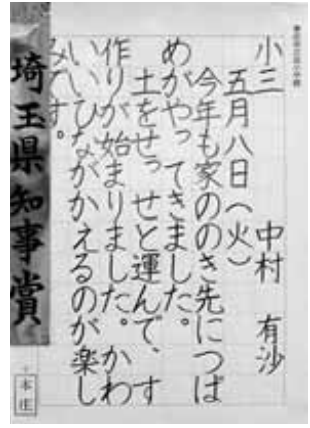 小三　中村　有沙
五月八日（火）
今年も家ののき先につば
めがやってきました。
土をせっせと運んで、す
作りが始まりました。かわ
いいひながかえるのが楽し
みです。
埼玉県知事賞
本庄